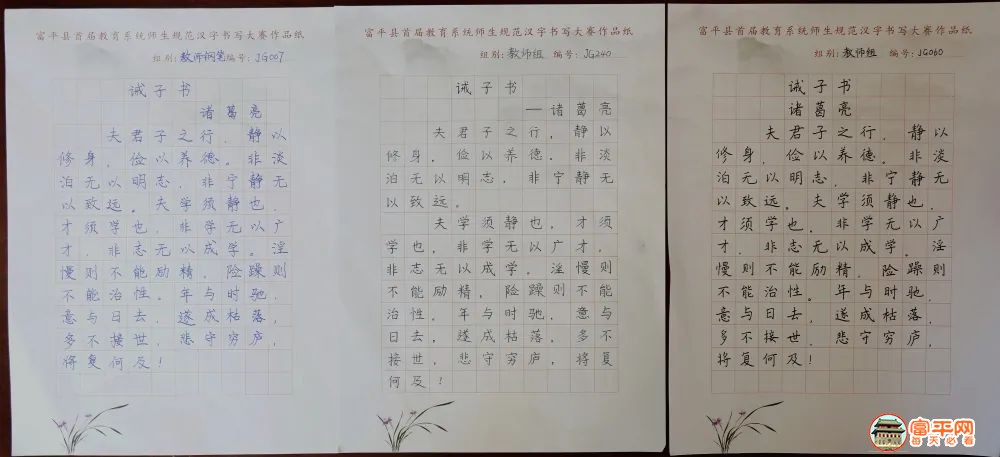 富平县首届教育系统师生规范汉字书写大赛作品纸
组别:教师钢笔编号:JG007
诫子书
诸葛亮
夫君子之行，静以
修身，俭以养德。非淡
泊无以明志，非宁静无
以致远。夫学须静也，
才须学也，非学无以广
才，非志无以成学。淫
慢则不能励精，险躁则
不能治性。年与时驰，
意与日去，遂成枯落，
多不接世，悲守穷庐，
将复何及！
富平县首届教育系统师生规范汉字书写大赛作品纸
组别:教师组 编号:JG240
诫子书
——诸葛亮
夫君子之行，静以
修身，俭以养德。非淡
泊无以明志，非宁静无
以致远。
夫学须静也，才须
学也，非学无以广才，
非志无以成学。淫慢则
不能励精，险躁则不能
治性。年与时驰，意与
日去，遂成枯落，多不
接世，悲守穷庐，将复
何及！
富平县首届教育系统师生规范汉字书写大赛作品纸
组别:教师组 编号:JG060
诫子书
诸葛亮
夫君子之行，静以
修身，俭以养德。非淡
泊无以明志，非宁静无
以致远。夫学须静也，
才须学也，非学无以广
才，非志无以成学。淫
慢则不能励精，险躁则
不能治性。年与时驰，
意与日去，遂成枯落，
多不接世，悲守穷庐，
将复何及！
富平网
每天必看